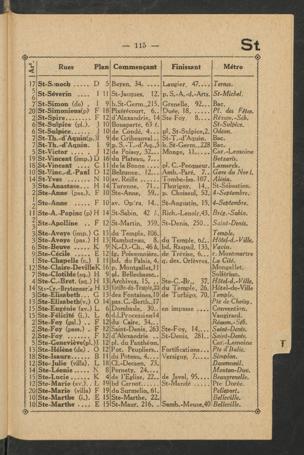 — 115 — St
Arr. Rues Plan Commençant Finissant Métro
17 St-Senoch D 5 Bayen, 34 Laugier, 47 Ternes.
2 St-Séverin I 11 St-Jacques, 12 p. S.-A.-d.-Arts. St-Michel.
7 St-Simon (de) I 9 b. St-Germ., 215 Grenelle, 92 Bac.
20 F 18 Pixérécourt, 6 Duée, 18 Pl. des Fêtes.
2 St-Spire F 12 d'Alexandrie, 14 Ste-Foy, 8 Réaum.-Séb.
6 St-Sulpice (pl.) I 10 Bonaparte, 63 St-Sulpice.
6 St-Sulpice I 10 de Condé, 4 pl. St-Sulpice, 2 Odéon.
7 St-Th.-d'Aquin I 9 St-Th.-d'A., b. St-Germ., 228 Bac.
5 St-Victor J 12 de Poissy, 32 Monge, 11 Car.-Lemoine
19 St-Vincent (imp.) D 16 du Plateau, 7 Botzaris.
18 St-Vincent C 11 de la Bonne pl. C.-Pecqueur Lamarck.
10 St-Vinc.-d.-Paul D 12 Belzunce, 10 Amb.-Paré, 7 Gare du Nord
14 St-Yves N 10 av. Reille Tombe-Iss, 107 Alésia.
3 Ste-Anastase H 14 Turenne, 71 Thorigny, 14 St-Sébastien.
2 Ste-Anne (pas.) F 10 Ste-Anne, 59 p. Choiseul, 52 4-Septembre.
Ste-Anne F 10 av. Op'ra, 14 St-Augustin, 15 4-Septembre.
11 Ste-A.-Popinc (p) H 14 St-Sabin, 42 b. Rich.-Lenoir, 43 Brég.-Sabin.
Ste-Apolline F 12 St-Martin, 359 St-Denis, 250 Saint-Denis.
3 Ste-Avoye (imp.) G 13 du Temple, 106 Temple.
3 Ste-Avoye (pas.) H 13 Rambuteau, 8 du Temple, 62 Hôtel-d.-Ville.
6 Ste-Beuve K 9 N.-D.-Ch., 46 bd. Raspail, 133 Vavin.
9 Ste-Cécile E 12 fg. Poissonnière de Trévise, 6 r. Montmartre
1 Ste-Chapelle (c.) I 11 bd. du Palais, 4 q. des. Orfèvres La Cité.
12 Ste-Claire-Deville K 16 p. Montgallet, 11 Montgallet.
7 Ste-Clotilde H 9 pl. Bellechasse Solférino.
4 Ste-C.-Bret. H 13 Archives, 15 Ste-C.-Br., 37 Hôtel-d.-Ville
du Temple, 26 Hôtel-d.-Ville
3 Ste-Elisabeth G 13 des Fontaines, 10 de Turbigo, 70 Temple.
Pte de Choisy.
14 Ste-Eugénie (av.) L 6 Dombasle, 30 en impasse Convention.
14 Ste-Félicité L 6 Vaugirard.
2 Ste-Foy (galerie) F 12 du Caire, 57 Réaum.-Séb.
2 Ste-Foy (pas.) F 12 Saint-Denis, 263 Ste-Foy, 14 Saint-Denis.
2 Ste-Foy F 12 d'Alexandrie St-Denis, 281 Saint-Denis.
5 Ste-Geneviève (pl.) J 12 du Panthéon Car.-Lemoine
13 Ste-Hélène (de) O 12 Pot. Peupliers. Fortifications Pte d'Italie.
18 Ste-Isaure B 11 du Poteau, 4 Versigny, 7 Simplon.
12 Ste-Julie (villa) L 18 Cl.-Decaen, 23 Daumesnil.
14 Ste-Léonie N 8 Pernety, 24 Mouton-Duv.
15 Ste-Lucie K 4 de l'Eglise, 22 de Javel, 95 Beaugrenelle.
12 Ste-Marie (av.) L 19 bd Carnot St-Mandé Pte Dorée.
20 Ste-Marie (villa) F 19 du Surmelin, 61 Pelleport.
10 Ste-Marthe (i.) E 15 Ste-Marthe, 22 Belleville.
10 Ste-Marthe E 15 St-Maur, 216 Samb.-Meuse, 40 Belleville.
T